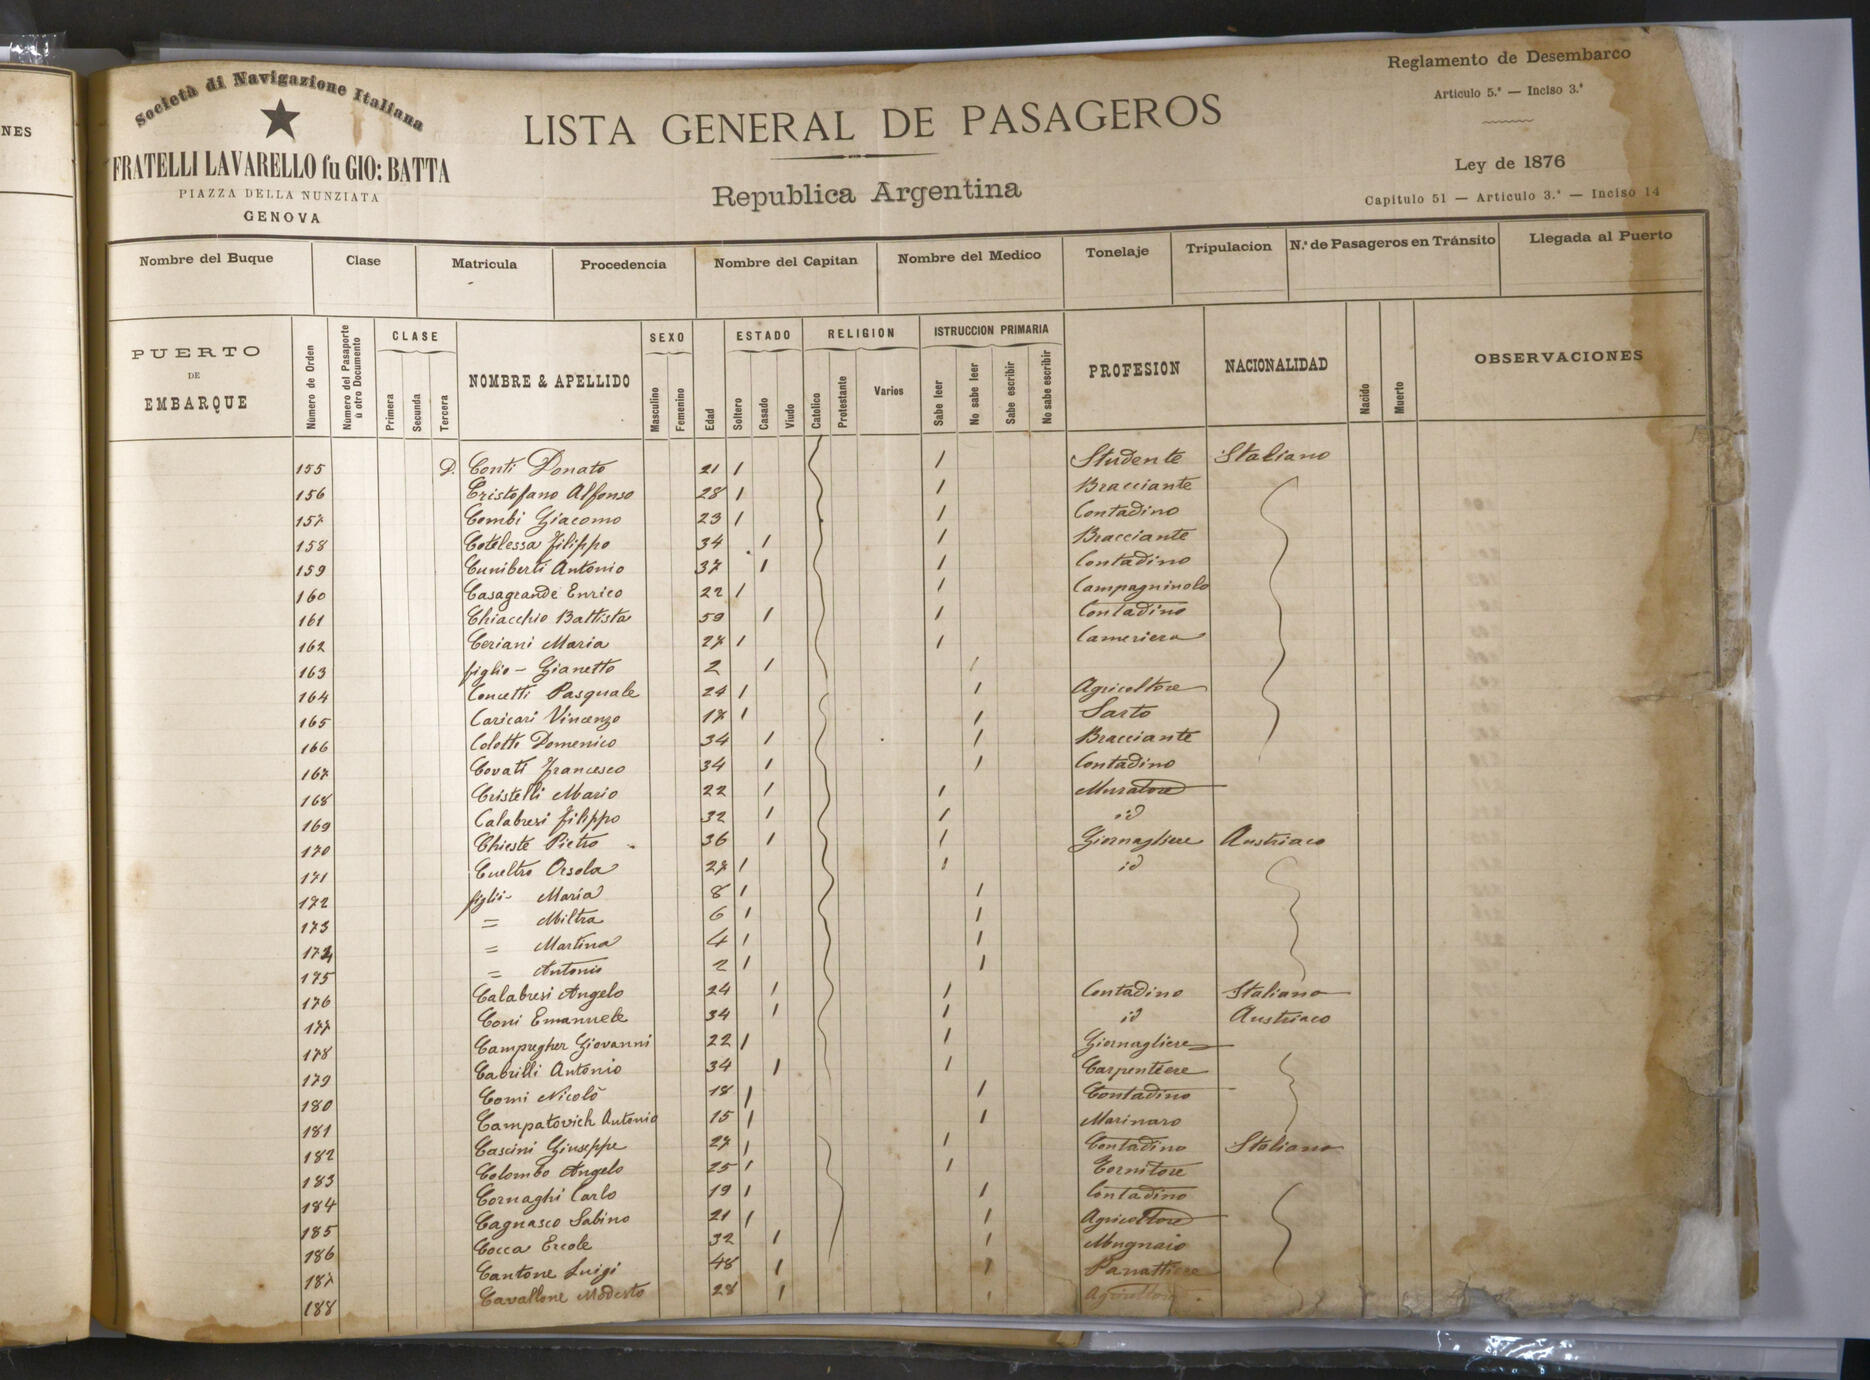 NES
Società di Navigazione Italiana
FRATELLI LAVARELLO fu GIO: BATTA
PIAZZA DELLA NUNZIATA
GENOVA
LISTA GENERAL DE PASAGEROS
Republica Argentina
Reglamento de Desembarco
Articulo 5.° — Inciso 3.°
Ley de 1876
Capitulo 51 — Articulo 3.° — Inciso 14
Nombre del Buque Clase Matricula Procedencia Nombre del Capitan Nombre del Medico Tonelaje Tripulacion N.° de Pasageros en Tránsito Llegada al Puerto
PUERTO DE EMBARQUE Número de Orden Número del Pasaporte u otro Documento CLASE Primera Secunda Tercera NOMBRE & APELLIDO SEXO Masculino Femenino Edad ESTADO Soltero Casado Viudo RELIGION Catolico Protestante Varios ISTRUCCION PRIMARIA Sabe leer No sabe leer Sabe escribir No sabe escribir PROFESION NACIONALIDAD Nacido Muerto OBSERVACIONES
155 D. Conti Donato 21 1 1 Studente Italiano
156 Cristofano Alfonso 28 1 1 Bracciante
157 Combi Giacomo 23 1 1 Contadino
158 Cotelessa Filippo 34 1 1 Bracciante
159 Cuniberti Antonio 37 1 1 Contadino
160 Casagrande Enrico 22 1 1 Campagninolo
161 Chiacchio Battista 59 1 1 Contadino
162 Ceriani Maria 27 1 1 Cameriera
163 figlio - Gianetto 2 1 1
164 Concetti Pasquale 24 1 1 Agricoltore
165 Caricari Vincenzo 17 1 1 Sarto
166 Coletti Domenico 34 1 1 Bracciante
167 Covati Francesco 34 1 1 Contadino
168 Cristelli Mario 22 1 1 Muratore
169 Calabresi Filippo 32 1 1 id
170 Chieste Pietro 36 1 1 Giornagliere Austriaco
171 Cueltro Orsola 27 1 1 id
172 figli - Maria 8 1 1
173 = Miltra 6 1 1
174 = Martina 4 1 1
175 = Antonio 2 1 1
176 Calabresi Angelo 24 1 1 Contadino Italiano
177 Coni Emanuele 34 1 1 id Austriaco
178 Campregher Giovanni 22 1 1 Giornagliere
179 Cabrilli Antonio 34 1 1 Carpentiere
180 Comi Nicolò 18 1 1 Contadino
181 Campatovich Antonio 15 1 1 Marinaro
182 Cascini Giuseppe 27 1 1 Contadino Italiano
183 Colombo Angelo 25 1 1 Tornitore
184 Cornaghi Carlo 19 1 1 Contadino
185 Cagnasco Sabino 21 1 1 Agricoltore
186 Cocca Ercole 32 1 1 Mugnaio
187 Cantone Luigi 48 1 1 Panattiere
188 Cavallone Modesto 28 1 1 Agricoltore